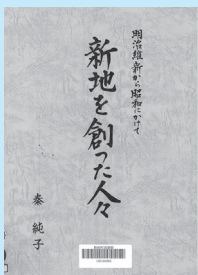 明治維新から昭和にかけて
新地を創った人々
秦 純子